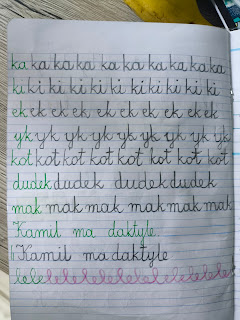 ka ka ka ka ka ka ka ka ka ka
ki ki ki ki ki ki ki ki ki ki
ek ek ek ek ek ek ek ek ek
yk yk yk yk yk yk yk yk yk
kot kot kot kot kot kot kot kot
dudek dudek dudek dudek
mak mak mak mak mak mak
Kamil ma daktyle.
Kamil ma daktyle
lelelelelelelelelelelele